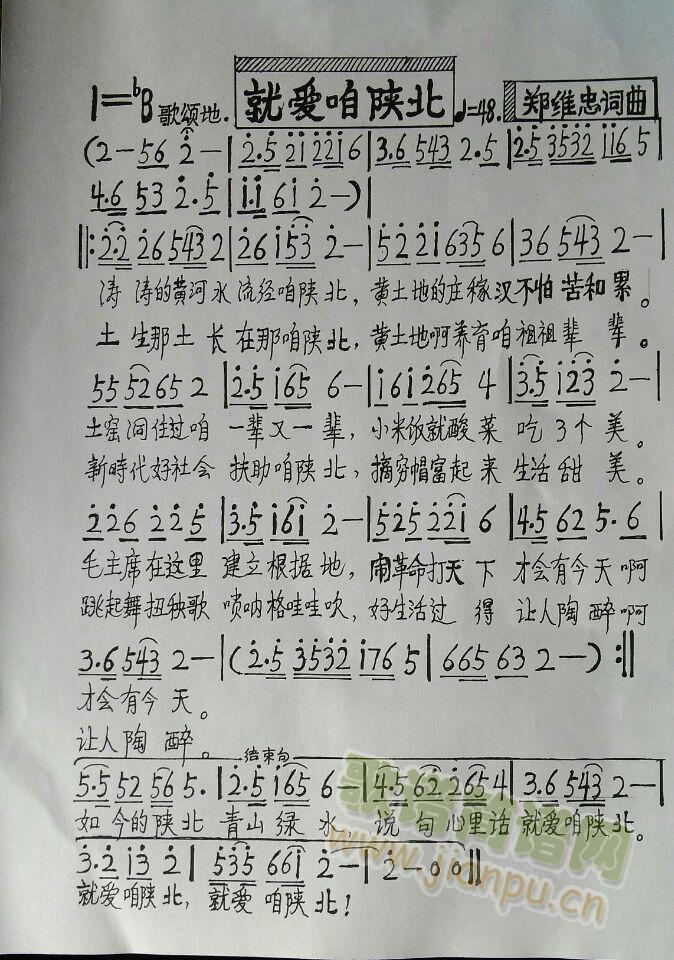 1=bB 歌颂地. 就爱咱陕北 ♩=48. 郑维忠词曲
(2— 56 2— | 2·5 21 2216 | 3·6 543 2·5 | 2·5 3532 116 5
4·6 53 2·5 | 1·1 61 2—) |
‖: 2·2 26 543 2 | 26 153 2— | 52 21 635 6 | 36 543 2— |
涛 涛的黄河水 流经咱陕北, 黄土地的庄稼汉不怕苦和累。
土 生那土长 在那咱陕北, 黄土地啊养育咱祖祖辈 辈。
55 52 65 2 | 2·5 165 6— | 161 265 4 | 3·5 123 2— |
土窑洞住过咱 一辈又一辈, 小米饭就酸菜 吃了个 美。
新時代好社会 扶助咱陕北, 摘穷帽富起来 生活甜 美。
226 225 | 3·5 161 2— | 525 221 6 | 4·5 62 5·6 |
毛主席在这里 建立根据地, 闹革命打天下 才会有今天啊
跳起舞扭秧歌 唢呐格哇哇吹, 好生活过 得 让人陶醉啊
3·6 543 2— | (2·5 3532 176 5 | 665 63 2—) :‖
才会有今 天。
让人陶 醉。
结束句
5·5 52 56 5· | 2·5 165 6— | 4·5 62 265 4 | 3·6 543 2— |
如 今的陕北 青山绿 水 说 句心里话 就爱咱陕北。
3·2 13 2 | 535 661 2— | 2—00 ‖
就爱咱陕北, 就爱 咱陕 北!
歌谱简谱网
www.jianpu.cn